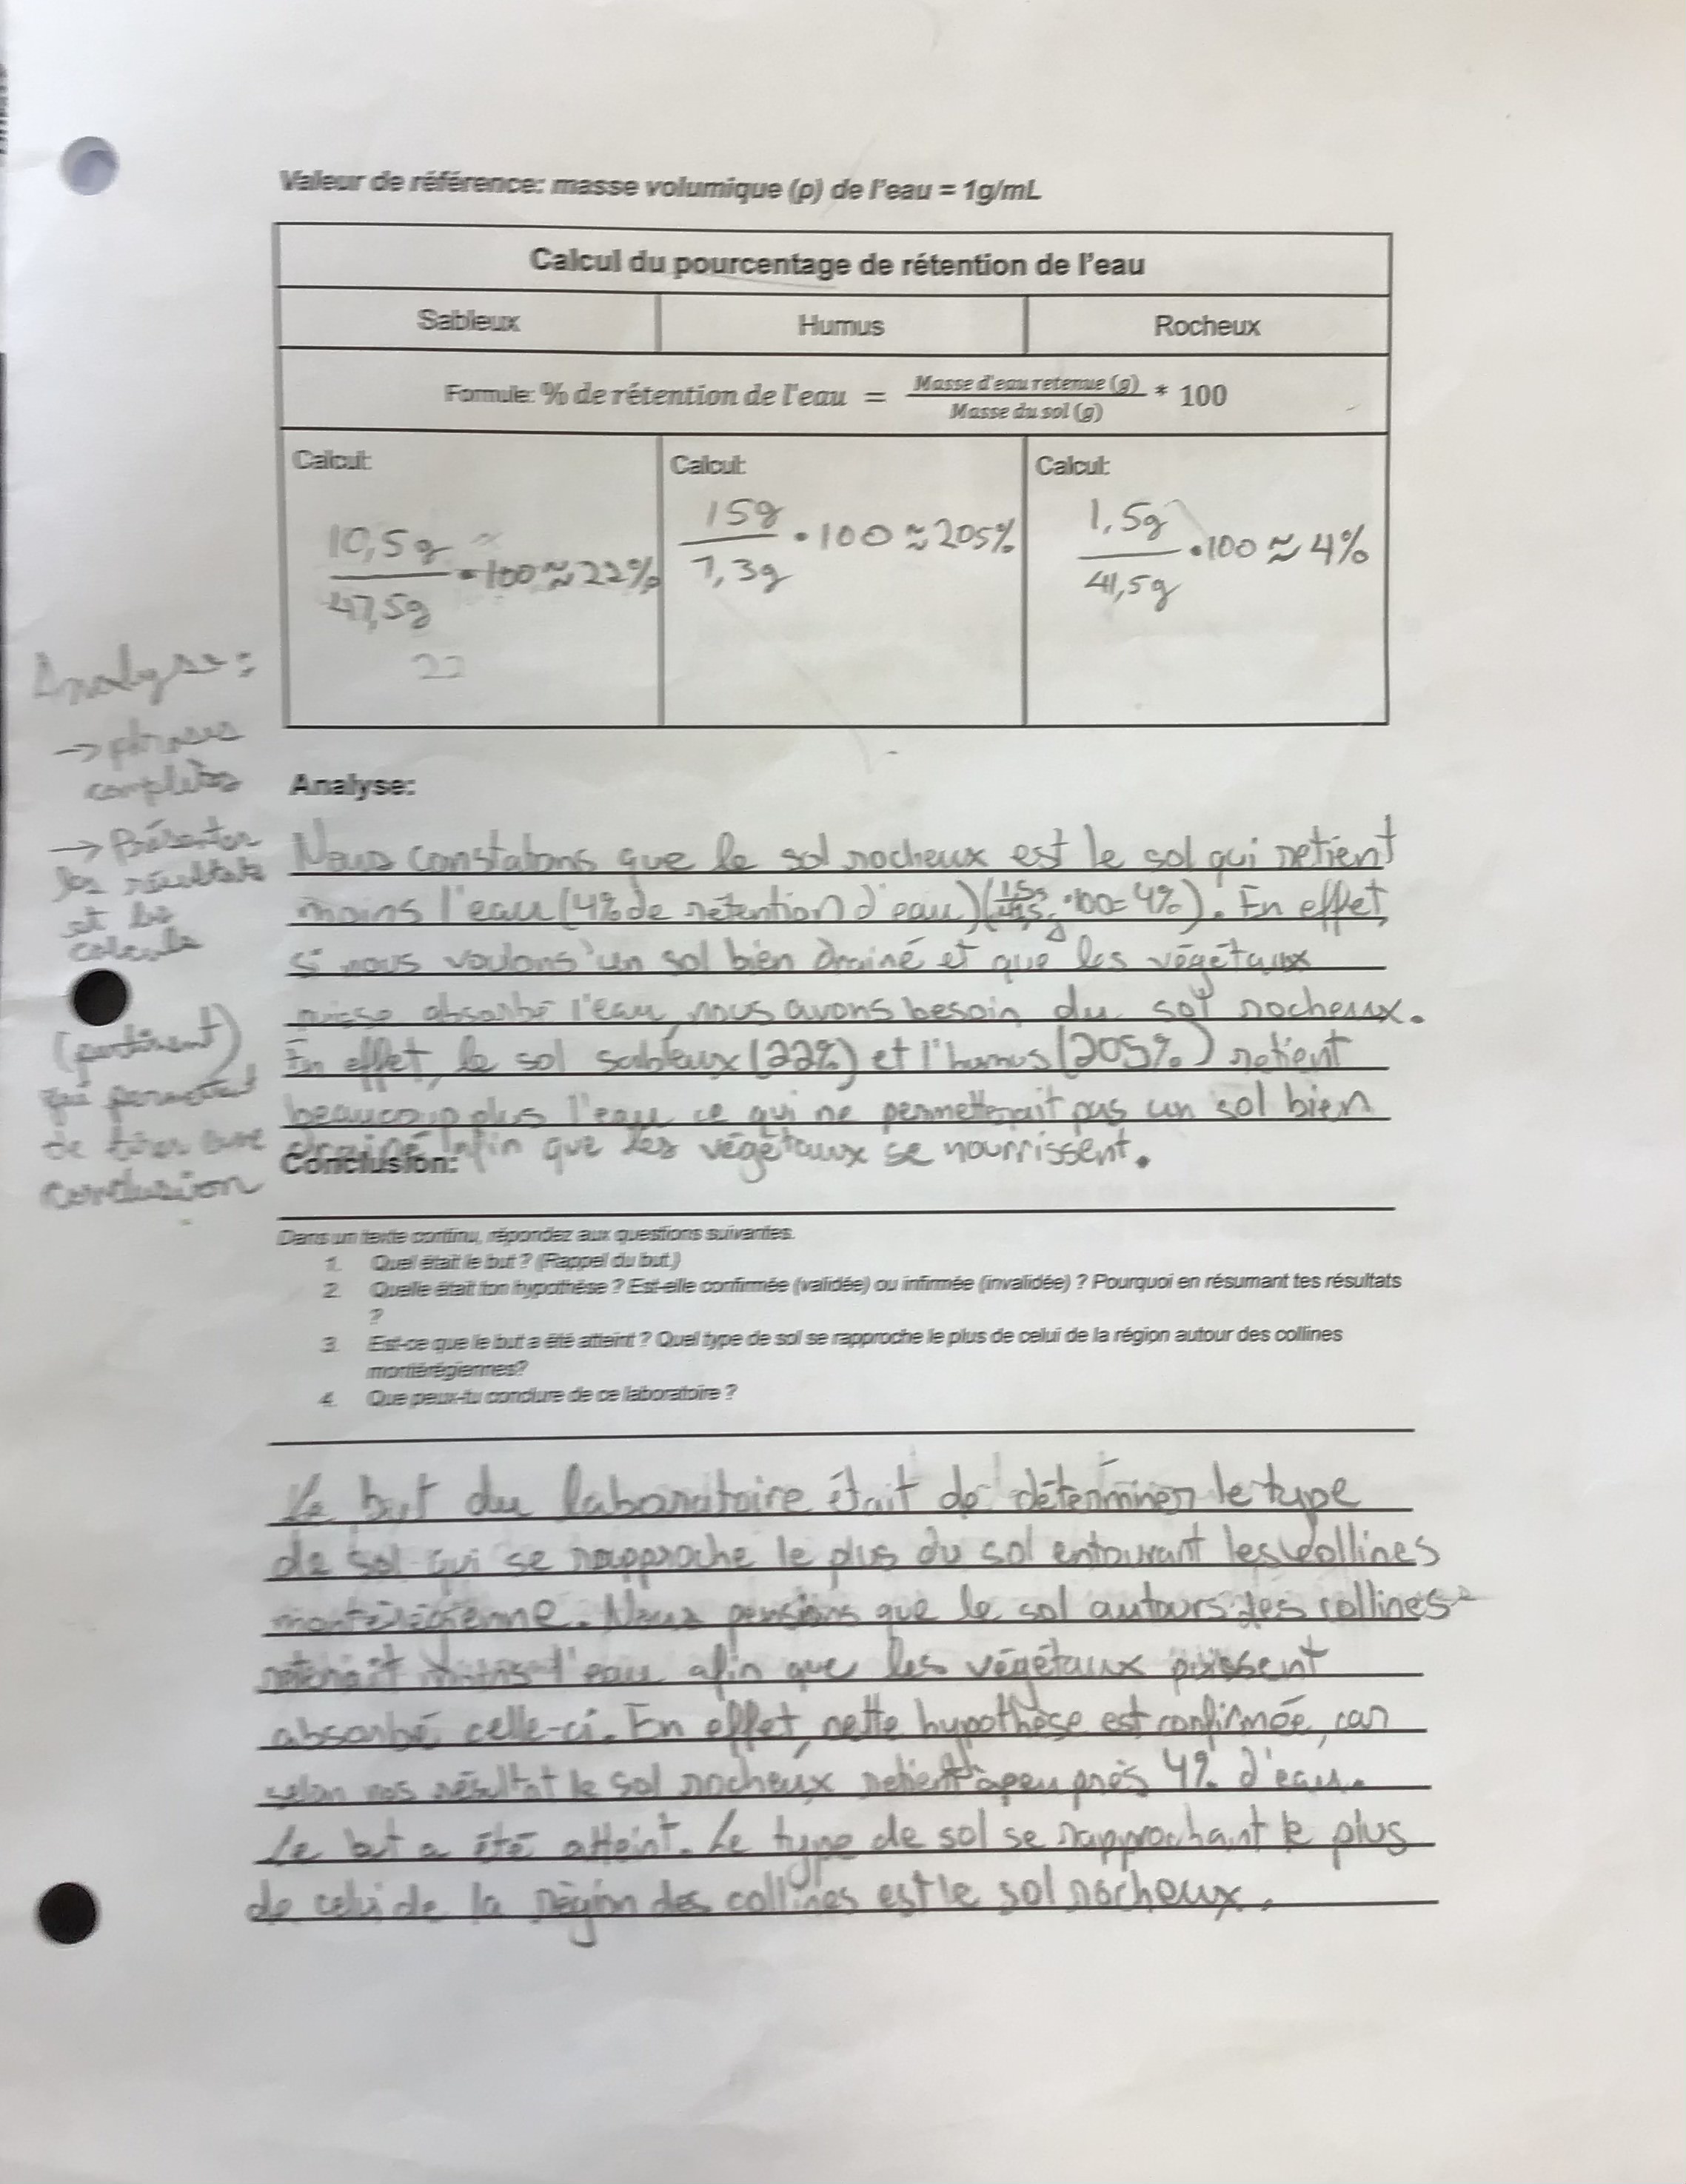 Valeur de référence: masse volumique (ρ) de l'eau = 1g/mL
Calcul du pourcentage de rétention de l'eau
Sableux Humus Rocheux
Formule: % de rétention de l'eau = Masse d'eau retenue (g) / Masse du sol (g) * 100
Calcul: Calcul: Calcul:
10,5g / 47,5g • 100 ≈ 22%
22
15g / 7,3g • 100 ≈ 205%
1,5g / 41,5g • 100 ≈ 4%
Analyse:
→ phrases
complètes
→ Présenter
les résultats
et les
calculs
(pertinent)
qui permettent
de tirer une
conclusion
Analyse:
Nous constatons que le sol rocheux est le sol qui retient
moins l'eau (4% de rétention d'eau) (1,5g / 41,5g •100= 4%). En effet,
si nous voulons un sol bien drainé et que les végétaux
puisse absorbé l'eau, nous avons besoin du sol rocheux.
En effet, le sol sableux (22%) et l'humus (205%) retient
beaucoup plus l'eau ce qui ne permetterait pas un sol bien
drainé afin que les végétaux se nourrissent.
Conclusion:
Dans un texte continu, répondez aux questions suivantes.
1. Quel était le but ? (Rappel du but.)
2. Quelle était ton hypothèse ? Est-elle confirmée (validée) ou infirmée (invalidée) ? Pourquoi en résumant tes résultats
?
3. Est-ce que le but a été atteint ? Quel type de sol se rapproche le plus de celui de la région autour des collines
montérégiennes?
4. Que peux-tu conclure de ce laboratoire ?
Le but du laboratoire était de déterminer le type
de sol qui se rapproche le plus du sol entourant les collines
montérégienne. Nous pensions que le sol autours des collines
retenait moins l'eau afin que les végétaux puissent
absorbé celle-ci. En effet, cette hypothèse est confirmée, car
selon nos résultat le sol rocheux retient à peu près 4% d'eau.
Le but a été atteint. Le type de sol se rapprochant le plus
de celui de la région des collines est le sol rocheux.